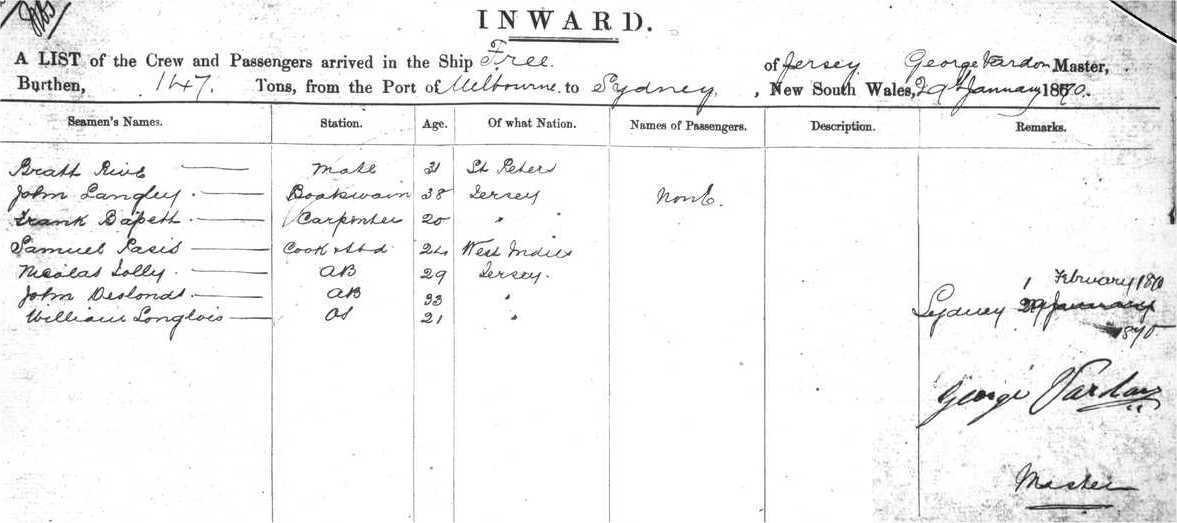 INWARD.
A LIST of the Crew and Passengers arrived in the Ship Free. of Jersey George Vardon Master,
Burthen, 147. Tons, from the Port of Melbourne to Sydney, , New South Wales, 29 January 1870.
Seamen's Names. Station. Age. Of what Nation. Names of Passengers. Description. Remarks.
Mate 31 St Peters
John Langley. Boatswain 38 Jersey None.
Frank Carpenter 20 "  "
Samuel Cook & Std 24 West Indies
Nicolas AB 29 Jersey.
John AB 33 "
William Langlois OS 21 "
1 February 1870
Sydney 29 January
1870
George Vardon
Master